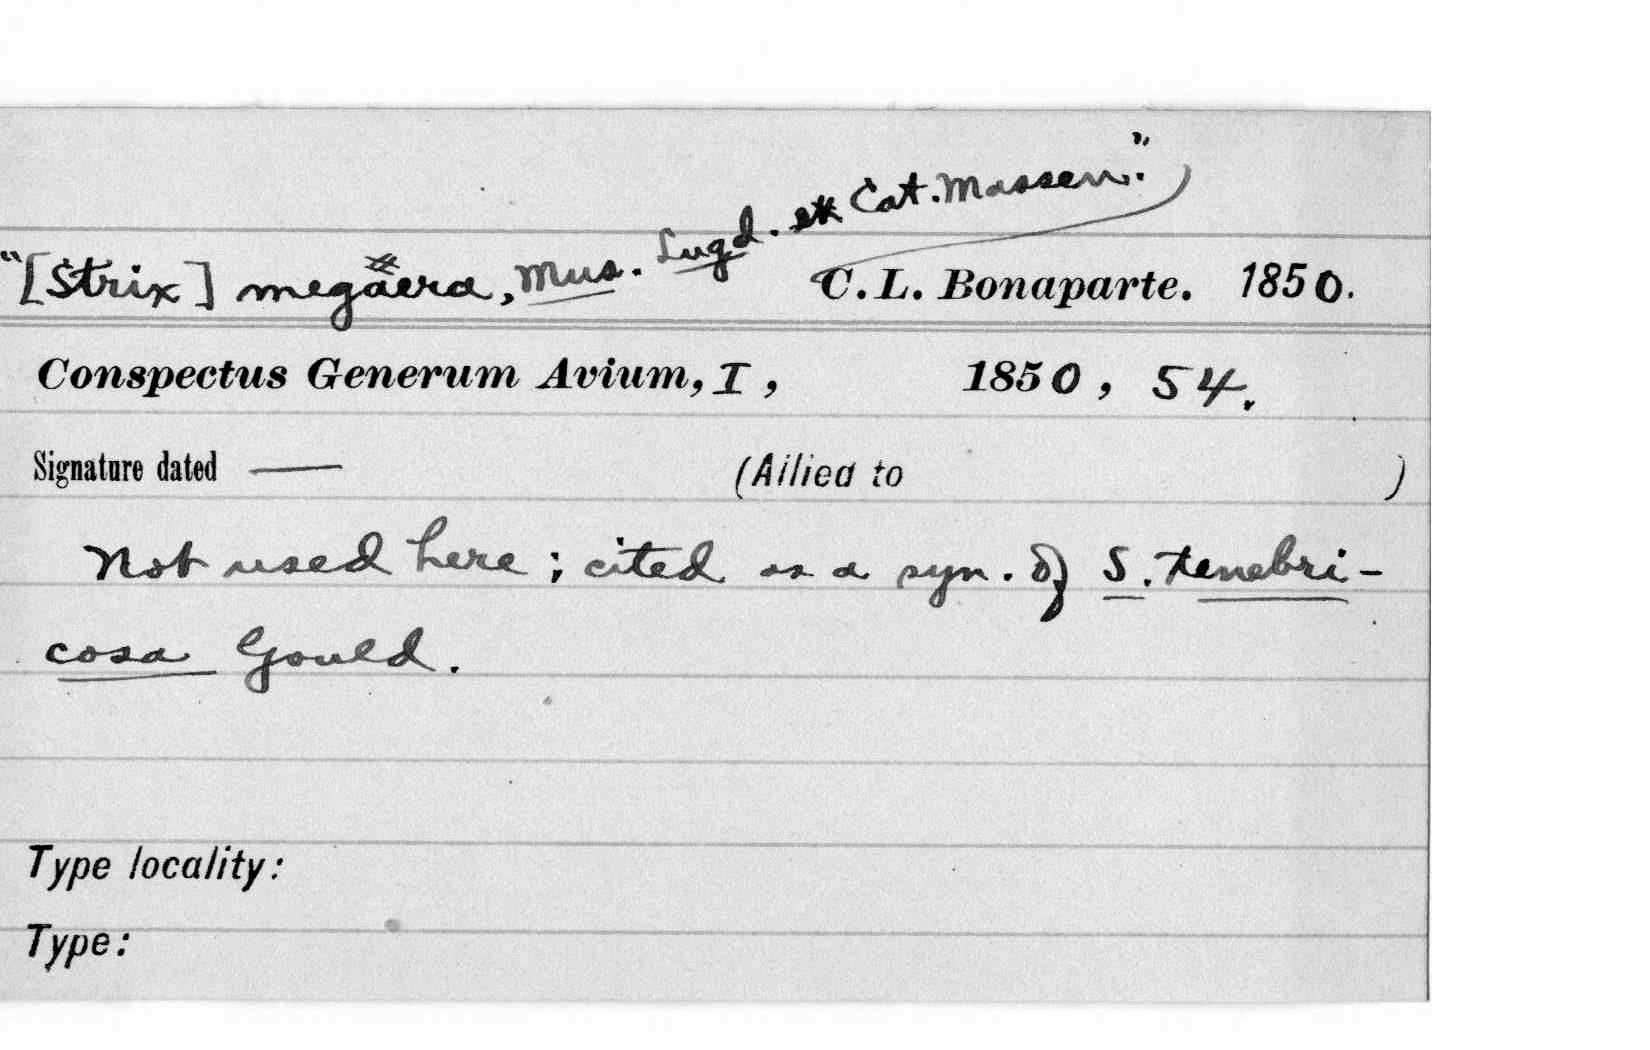 "[Strix] megaera, Mus. Lugd. et Cat. Massen." C. L. Bonaparte. 1850.
Conspectus Generum Avium, I, 1850, 54.
Signature dated — (Allied to )
Not used here; cited as a syn. of S. tenebri-
cosa Gould.
Type locality:
Type: